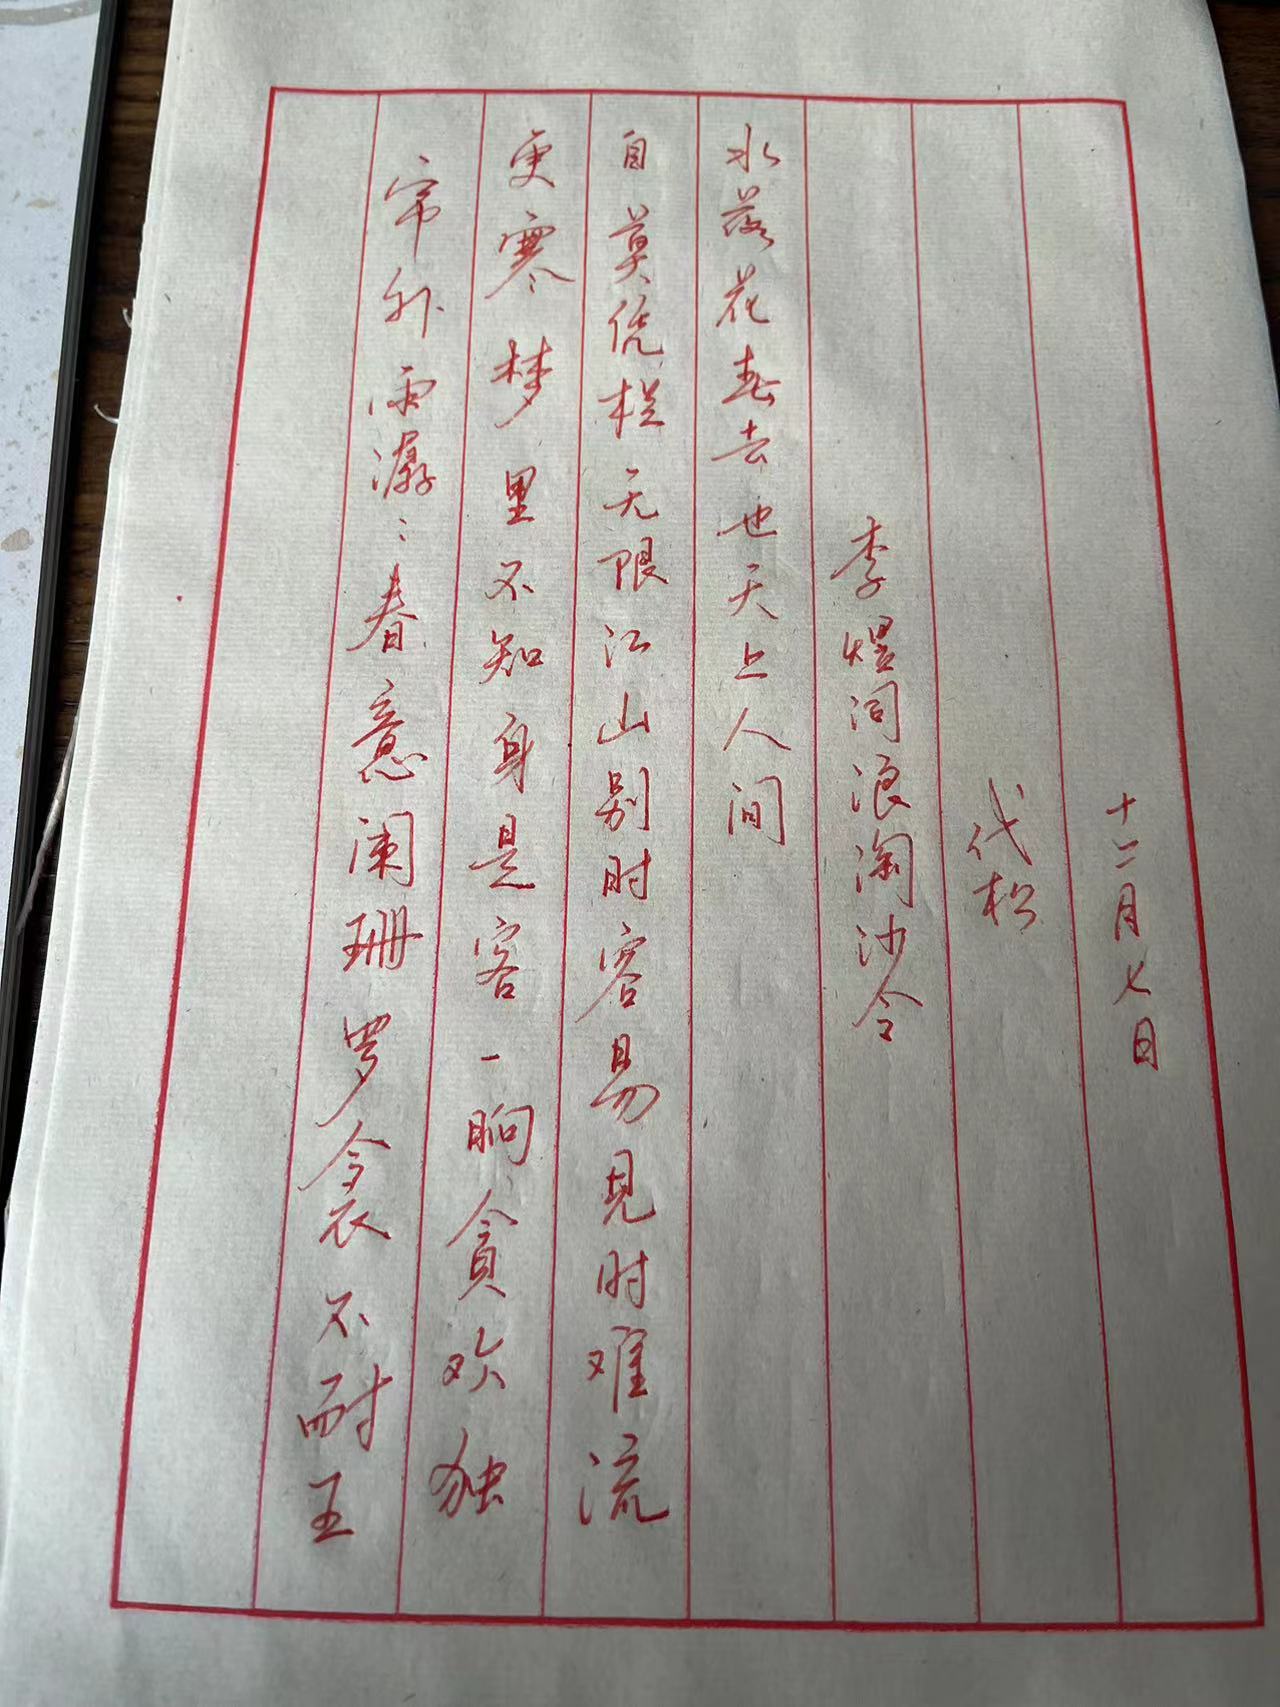 帘外雨潺：春意阑珊罗衾不耐五
更寒梦里不知身是客一晌贪欢独
自莫凭栏无限江山别时容易见时难流
水落花春去也天上人间
李煜词浪淘沙令
代松
十二月七日